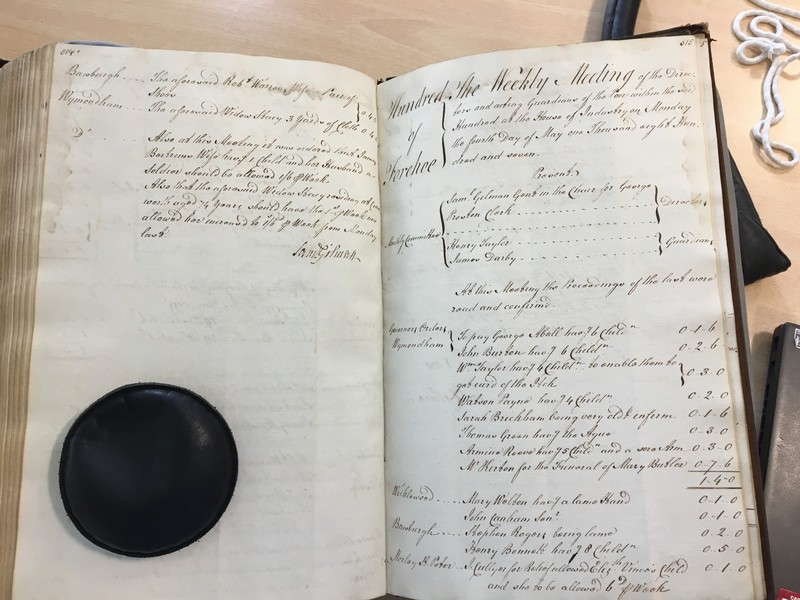 514
Bawburgh .... The aforesaid Robt. Warren's Wife a Pair of
Shoes
Wymondham ... The aforesaid Widow Stacy 3 Yards of Cloth
Do. Also at this Meeting it was ordered that James
Bertrums Wife havg. 1 Child and her Husband a
Soldier should be allowed 1/6 p Week
Also that the aforesaid Widow Stacy residing at
aged 74 Years should have the 1s. p Week now
allowed her increased to 1/6d. p Week from Monday
last.
Saml. Gilman
515
Hundred
of
Forehoe
The Weekly Meeting of the Direc-
tors and acting Guardians of the Poor within the said
Hundred at the House of Industry on Monday
the fourth day of May one Thousand eight Hun-
dred and seven.
Present
Weekly Committee
Saml. Gilman Gent in the Chair for George
Preston Clerk
Directors
Henry Taylor
James Darby
Guardians
At this Meeting the Proceedings of the last were
read and confirmed.
Governors Orders
Wymondham
To pay George Aboll havg. 6 Childn. 0-1-6
John Burton havg. 6 Childn. 0-2-6
Wm. Taylor havg. 4 Childn. to enable them to
get cured of the Itch 0-3-0
Watson Payne havg. 4 Childn. 0-2-0
Sarah Brickham being very old & infirm 0-1-6
Thomas Green havg. the Ague 0-3-0
Armine Reeve havg. 5 Childn. and a sore Arm 0-3-0
Mr. Kerton for the Funeral of Mary Butler 0-7-6
1-4-0
Wicklewood .... Mary Wolton havg. a lame Hand 0-1-0
John Canham Senr. 0-1-0
Bawburgh ..... Stephen Rogers being lame 0-2-0
Henry Bennett havg. 8 Childn. 0-5-0
Morley St. Peter .. J. Cullyer for Relief allowed Elizth. Vince's Child 0-1-0
and she to be allowed 6d. p Week